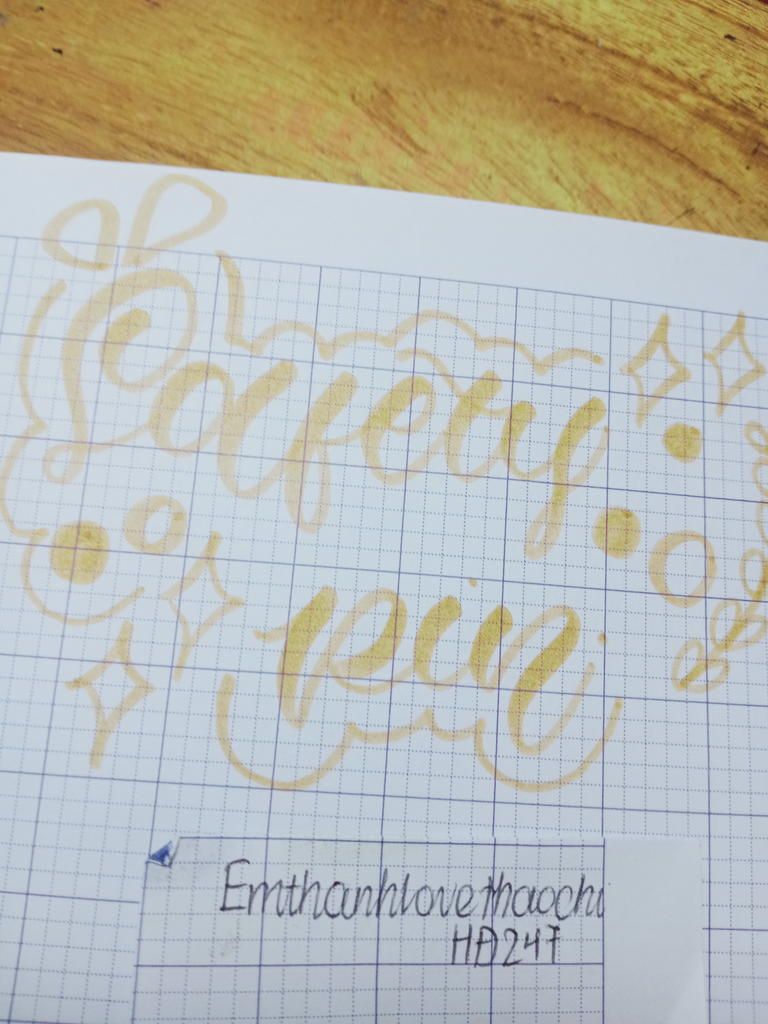 Safety
pin
Emthanhlovethaochi
HĐ247